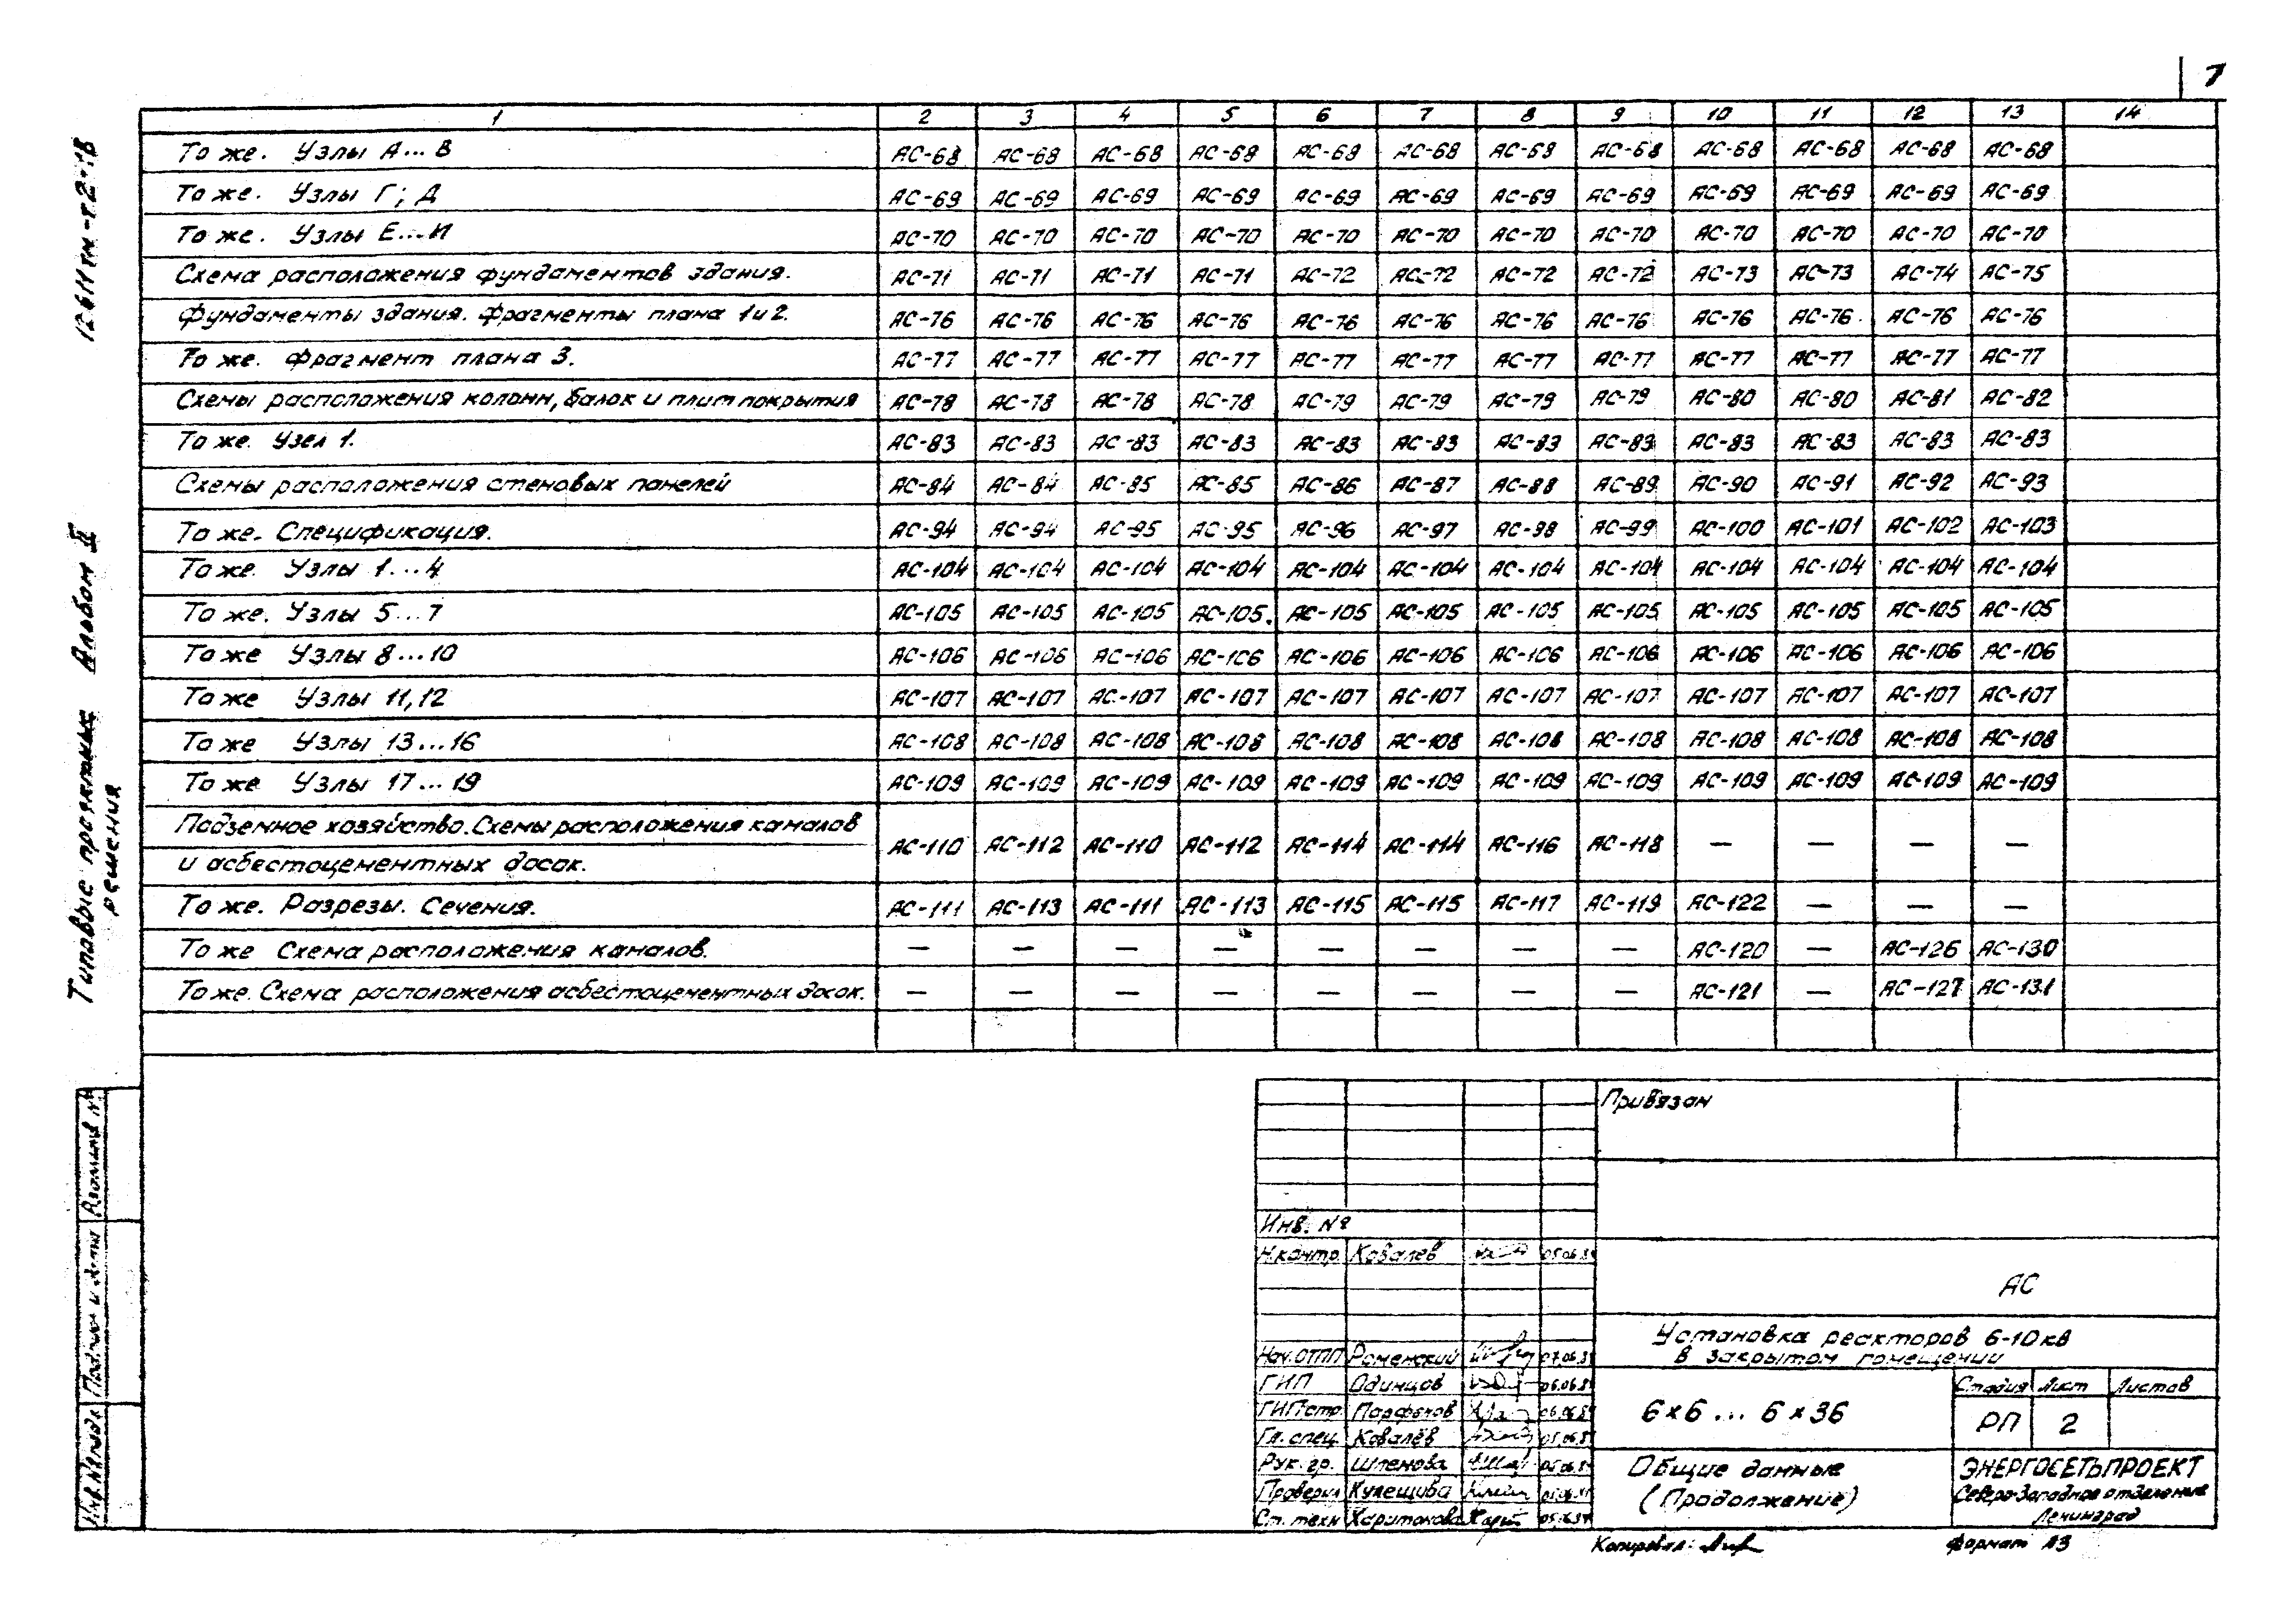 7
1 2 3 4 5 6 7 8 9 10 11 12 13 14
То же. Узлы А...В АС-68 АС-68 АС-68 АС-68 АС-68 АС-68 АС-68 АС-68 АС-68 АС-68 АС-68 АС-68
То же. Узлы Г; Д АС-69 АС-69 АС-69 АС-69 АС-69 АС-69 АС-69 АС-69 АС-69 АС-69 АС-69 АС-69
То же. Узлы Е...И АС-70 АС-70 АС-70 АС-70 АС-70 АС-70 АС-70 АС-70 АС-70 АС-70 АС-70 АС-70
Схема расположения фундаментов здания. АС-71 АС-71 АС-71 АС-71 АС-72 АС-72 АС-72 АС-72 АС-73 АС-73 АС-74 АС-75
Фундаменты здания. Фрагменты плана 1 и 2. АС-76 АС-76 АС-76 АС-76 АС-76 АС-76 АС-76 АС-76 АС-76 АС-76 АС-76 АС-76
То же. Фрагмент плана 3. АС-77 АС-77 АС-77 АС-77 АС-77 АС-77 АС-77 АС-77 АС-77 АС-77 АС-77 АС-77
Схемы расположения колонн, балок и плит покрытия АС-78 АС-78 АС-78 АС-78 АС-79 АС-79 АС-79 АС-79 АС-80 АС-80 АС-81 АС-82
То же. Узел 1. АС-83 АС-83 АС-83 АС-83 АС-83 АС-83 АС-83 АС-83 АС-83 АС-83 АС-83 АС-83
Схемы расположения стеновых панелей АС-84 АС-84 АС-85 АС-85 АС-86 АС-87 АС-88 АС-89 АС-90 АС-91 АС-92 АС-93
То же. Спецификация. АС-94 АС-94 АС-95 АС-95 АС-96 АС-97 АС-98 АС-99 АС-100 АС-101 АС-102 АС-103
То же. Узлы 1...4 АС-104 АС-104 АС-104 АС-104 АС-104 АС-104 АС-104 АС-104 АС-104 АС-104 АС-104 АС-104
То же. Узлы 5...7 АС-105 АС-105 АС-105 АС-105. АС-105 АС-105 АС-105 АС-105 АС-105 АС-105 АС-105 АС-105
То же Узлы 8...10 АС-106 АС-106 АС-106 АС-106 АС-106 АС-106 АС-106 АС-106 АС-106 АС-106 АС-106 АС-106
То же Узлы 11,12 АС-107 АС-107 АС-107 АС-107 АС-107 АС-107 АС-107 АС-107 АС-107 АС-107 АС-107 АС-107
То же Узлы 13...16 АС-108 АС-108 АС-108 АС-108 АС-108 АС-108 АС-108 АС-108 АС-108 АС-108 АС-108 АС-108
То же Узлы 17...19 АС-109 АС-109 АС-109 АС-109 АС-109 АС-109 АС-109 АС-109 АС-109 АС-109 АС-109 АС-109
Подземное хозяйство. Схемы расположения каналов
и асбестоцементных досок. АС-110 АС-112 АС-110 АС-112 АС-114 АС-114 АС-116 АС-118 — — — —
То же. Разрезы. Сечения. АС-111 АС-113 АС-111 АС-113 АС-115 АС-115 АС-117 АС-119 АС-122 — — —
То же Схема расположения каналов. — — — — — — — — АС-120 — АС-126 АС-130
То же. Схема расположения асбестоцементных досок. — — — — — — — — АС-121 — АС-127 АС-131
Типовые проектные Альбом II
решения
Инв.№подл Подпись и дата
Привязан
Инв. №
Н.контр. Ковалев 05.06.
АС
Установка реакторов 6-10кв
в закрытом помещении
Нач.ОТПП Роменский 07.06.
ГИП Одинцов 06.06.
ГИПстр. Парфенов 06.06.
Гл. спец. Ковалёв 05.06.
Рук. гр. Шленова 05.06.
Проверил Кулешова
Ст. техн Харитонова
6×6... 6×36
Стадия Лист Листов
РП 2
Общие данные
(Продолжение)
ЭНЕРГОСЕТЬПРОЕКТ
Северо-Западное отделение
Ленинград
Копировал:
Формат А3